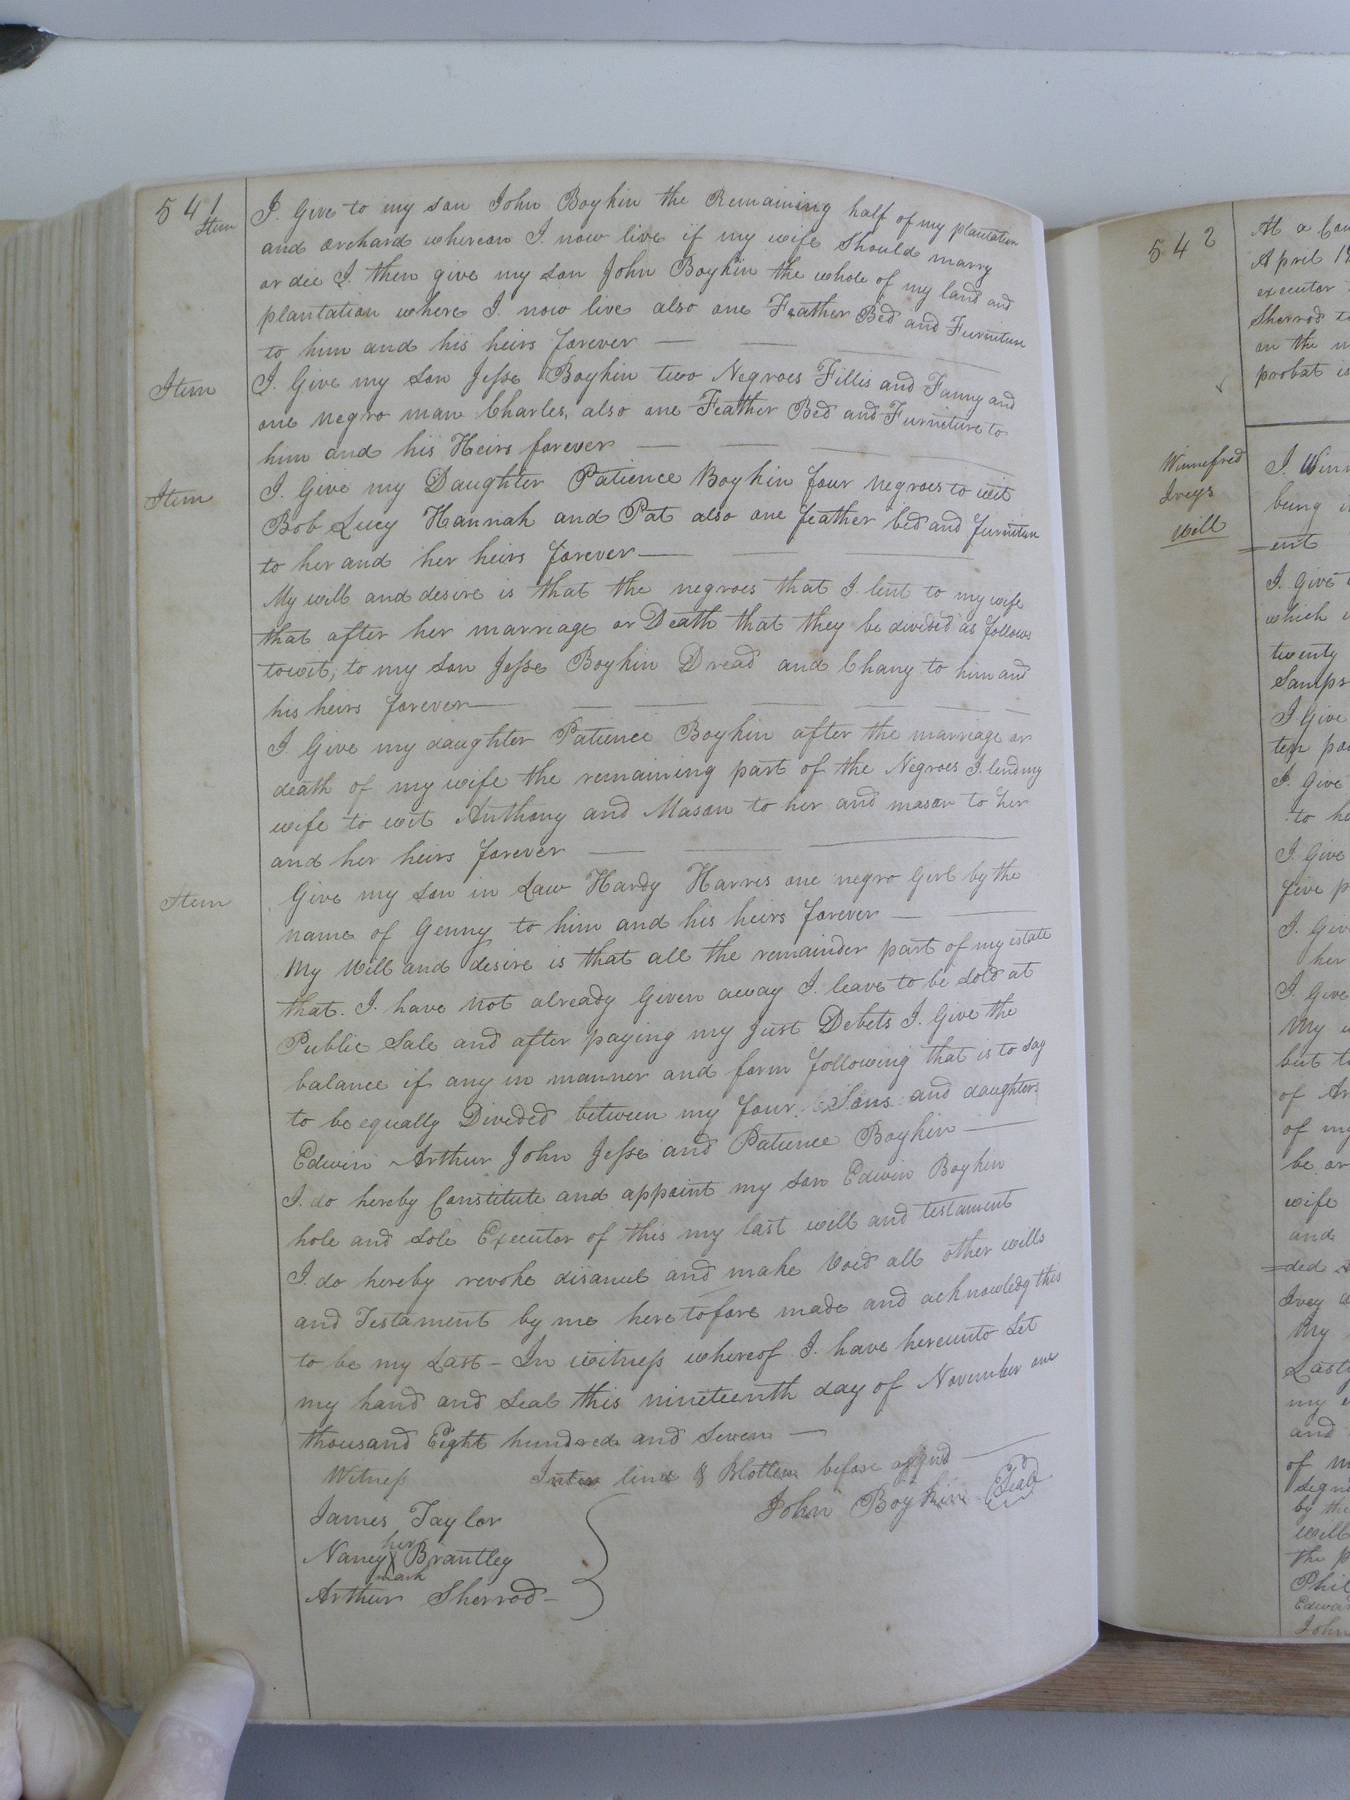 541
Item I Give to my son John Boykin the Remaining half of my plantation
and orchard whereon I now live if my wife should marry
or die I then give my son John Boykin the whole of my land and
plantation where I now live also one Feather Bed and Furniture
to him and his heirs forever
Item I Give my son Jesse Boykin two Negroes Fillis and Fanny and
one negro man Charles, also one Feather Bed and Furneture to
him and his Heirs forever
Item I Give my Daughter Patience Boykin four negroes to wit
Bob Lucy Hannah and Pat also one feather bed and furniture
to her and her heirs forever
My will and desire is that the negroes that I lent to my wife
that after her marriage or Death that they be divided as follows
towit, to my son Jesse Boykin Dread and Chany to him and
his heirs forever
I Give my daughter Patience Boykin after the marriage or
death of my wife the remaining part of the Negroes I lend my
wife to wit Anthony and Mason to her and mason to her
and her heirs forever
Item Give my son in Law Hardy Harris one negro Girl by the
name of Genny to him and his heirs forever
My Will and desire is that all the remainder part of my estate
that. I have not already Given away I leave to be sold at
Public Sale and after paying my just Debets I Give the
balance if any in manner and form following that is to say
to be equally Divided between my four Sons and daughters
Edwin Arthur John Jesse and Patience Boykin
I do hereby Constitute and appoint my son Edwin Boykin
hole and sole Executor of this my last will and testament
I do hereby revoke disanul and make Void all other wills
and Testament by me heretofore made and acknowledg this
to be my Last - In witness whereof I have hereunto Set
my hand and Seal this nineteenth day of November one
thousand Eight hundred and Seven
Witness Inter lind & Blotten before asignd
James Taylor John Boykin (Seal)
her
Nancy X Brantley
mark
Arthur Sherrod
542
At a Cou
April 18
executor
Sherrod to
on the
probat is
Winnefred
Iveys
Will
I. Winn
being
=ent
I. Give
which
twenty
Samps
I Give
ten po
I. Give
to he
I Give
five p
I. Give
her
I Give
My
but
of Ar
of my
be or
wife
and
=ded
Ivey
My
Lastly
my
and
of
signe
by the
will
the p
Phil
Edwar
John